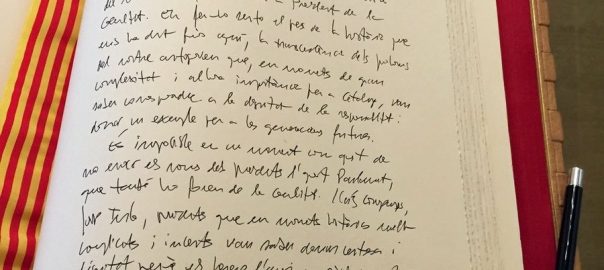 President de la
Generalitat. En fer-ho sento el pes de la història que
ens ha dut fins aquí, la transcendència dels polítics
del nostre autogovern que, en moments de gran
complexitat i alhora importància per a Catalunya, van
saber correspondre a la dignitat de la responsabilitat i
donar un exemple per a les generacions futures.
És impossible en un moment com aquest de
no evocar els noms dels presidents d'aquest Parlament,
que també ho foren de la Generalitat. Lluís Companys,
Josep Irla, presidents que en moments històrics molt
complicats i incerts van saber donar certesa i
dignitat però